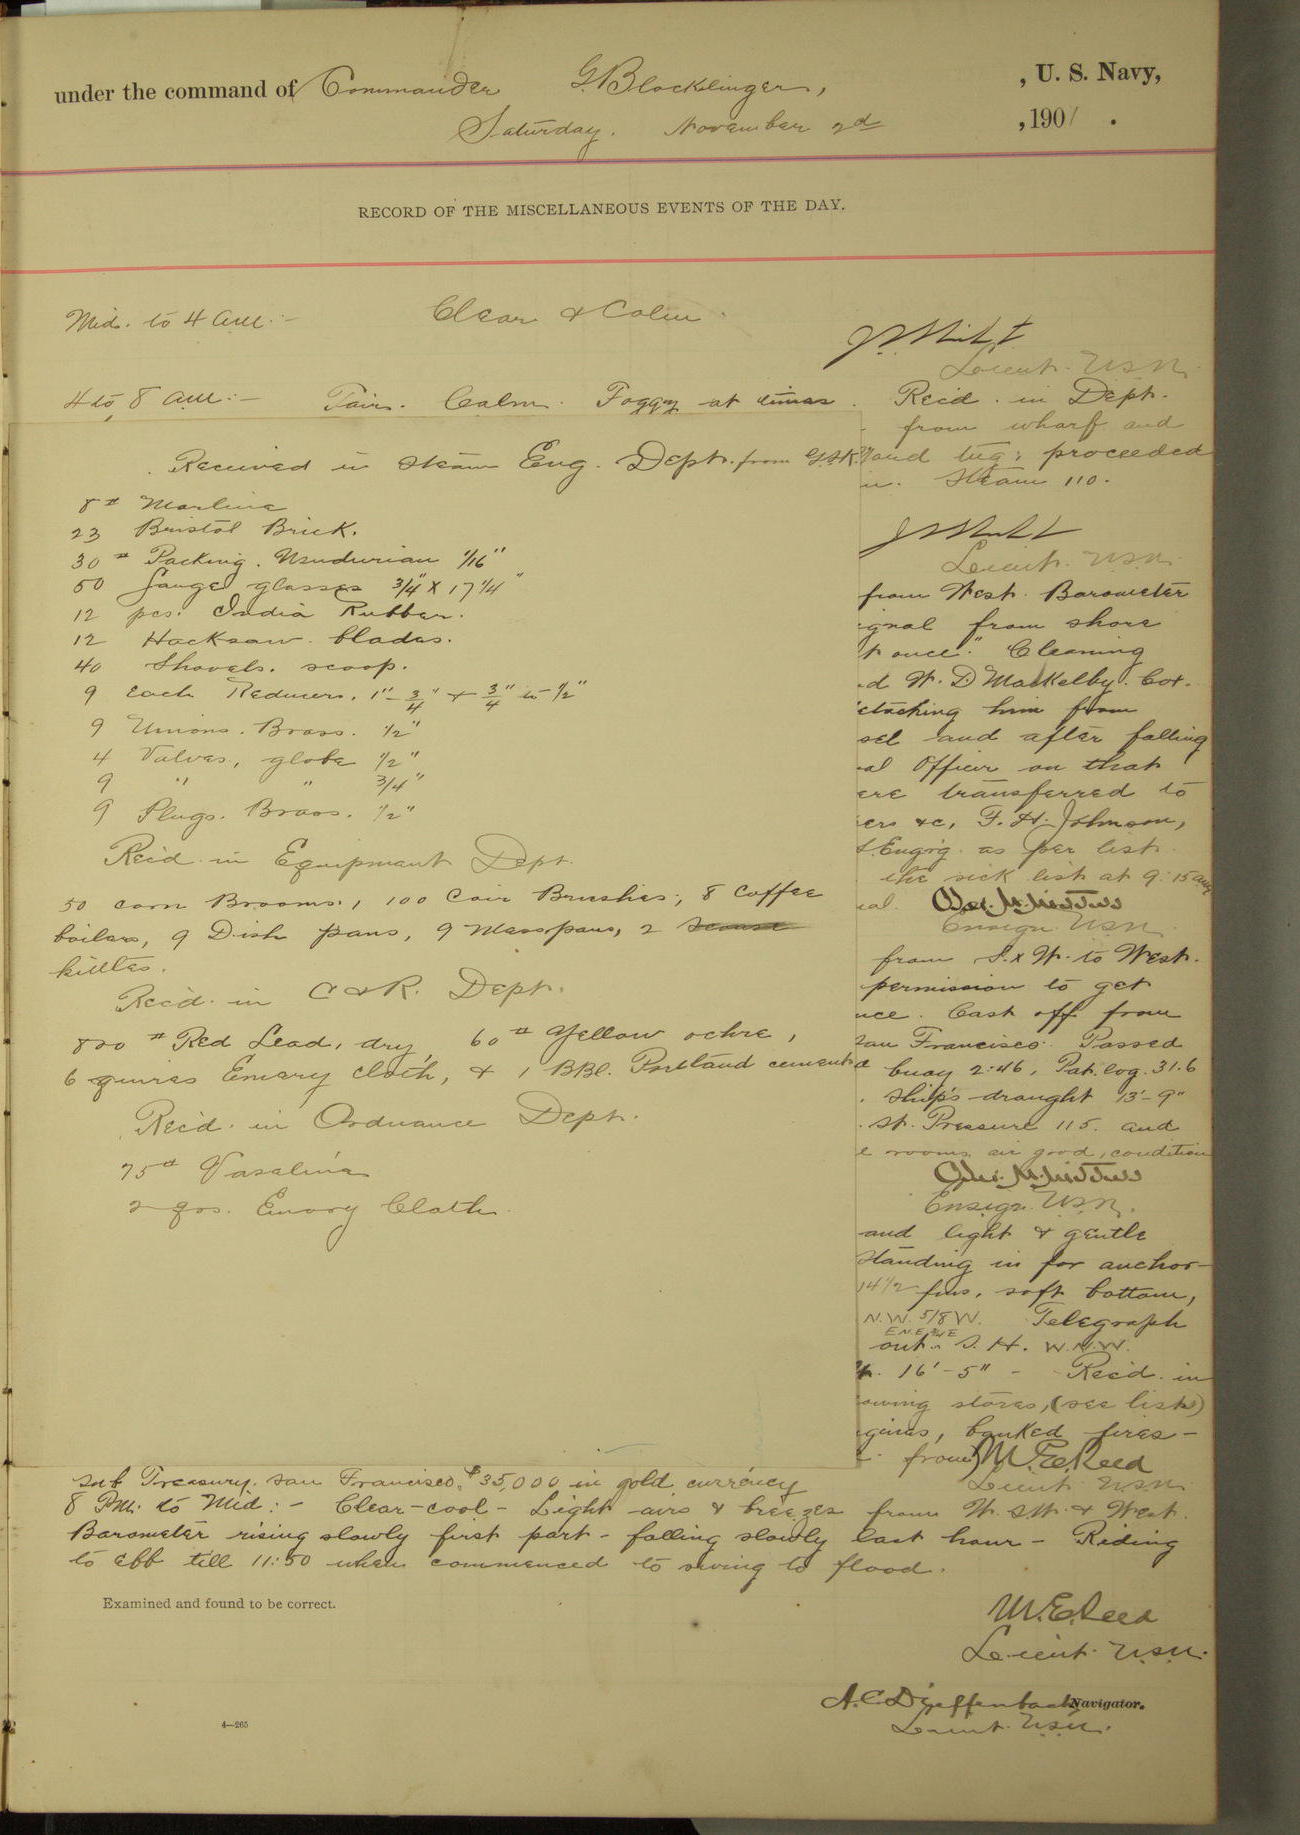 under the command of Commander G. Blocklinger, , U. S. Navy,
Saturday. November 2d , 1901 .
RECORD OF THE MISCELLANEOUS EVENTS OF THE DAY.
Mid. to 4 am:- Clear & Calm.
Lieut. USN.
4 to 8 am:- Fair. Calm. Foggy at times. Rec'd. in Dept.
from wharf and
and tug; proceeded
Steam 110.
Lieut. USN.
Received in Steam Eng. Dept. from G.S.K.
8# Marline
23 Bristol Brick.
30# Packing. Usudurian 1/16"
50 Gauge glasses 3/4" X 17 1/4"
12 pcs. India Rubber.
12 Hacksaw blades.
40 Shovels. scoop.
9 each Reducers. 1"-3/4" + 3/4" to 1/2"
9 Unions. Brass. 1/2"
4 Valves, globe 1/2"
9 " " 3/4"
9 Plugs. Brass. 1/2"
Rec'd. in Equipment Dept.
50 corn Brooms, 100 Coir Brushes; 8 Coffee
boilers, 9 Dish pans, 9 Mess pans, 2
kittles.
Rec'd. in C & R. Dept.
800# Red Lead, dry, 60# Yellow ochre,
6 quires Emery cloth, & 1 BBl. Portland cement
Rec'd. in Ordnance Dept.
75# Vasaline
2 qrs. Emory Cloth.
from West. Barometer
gnal from shore
t once." Cleaning
d W. D. Mackelby. Cox.
etaching him from
sel and after falling
al Officer on that
ere transferred to
ers &c, F. H. Johnson,
Eng'r'g. as per list.
the sick list at 9:15 am
Ensign USN.
from S.x W. to West.
permission to get
nce. Cast off from
San Francisco. Passed
buoy 2:46, Pat. log. 31.6
ship's draught 13'-9"
St. Pressure 115. and
e rooms air good, condition
Ensign. USN.
and light & gentle
Standing in for anchor-
14 1/2 fms, soft bottom,
N.W. 5/8 W. Telegraph
E.N.E. 3/4 E
out. S. H. W.N.W.
16'-5" - Rec'd. in
owing stores, (see list)
gines, banked fires-
from M. E. Reed
Lieut. USN.
Sub Treasury. San Francisco. $35,000 in gold currency
8 PM. to Mid:- Clear-cool- Light airs & breezes from W. SW. & West.
Barometer rising slowly first part- falling slowly last hour- Riding
to ebb till 11:50 when commenced to swing to flood.
Examined and found to be correct.
M. E. Reed
Lieut. USN.
A. C. Dieffenbach Navigator.
Lieut. USN.
4—265